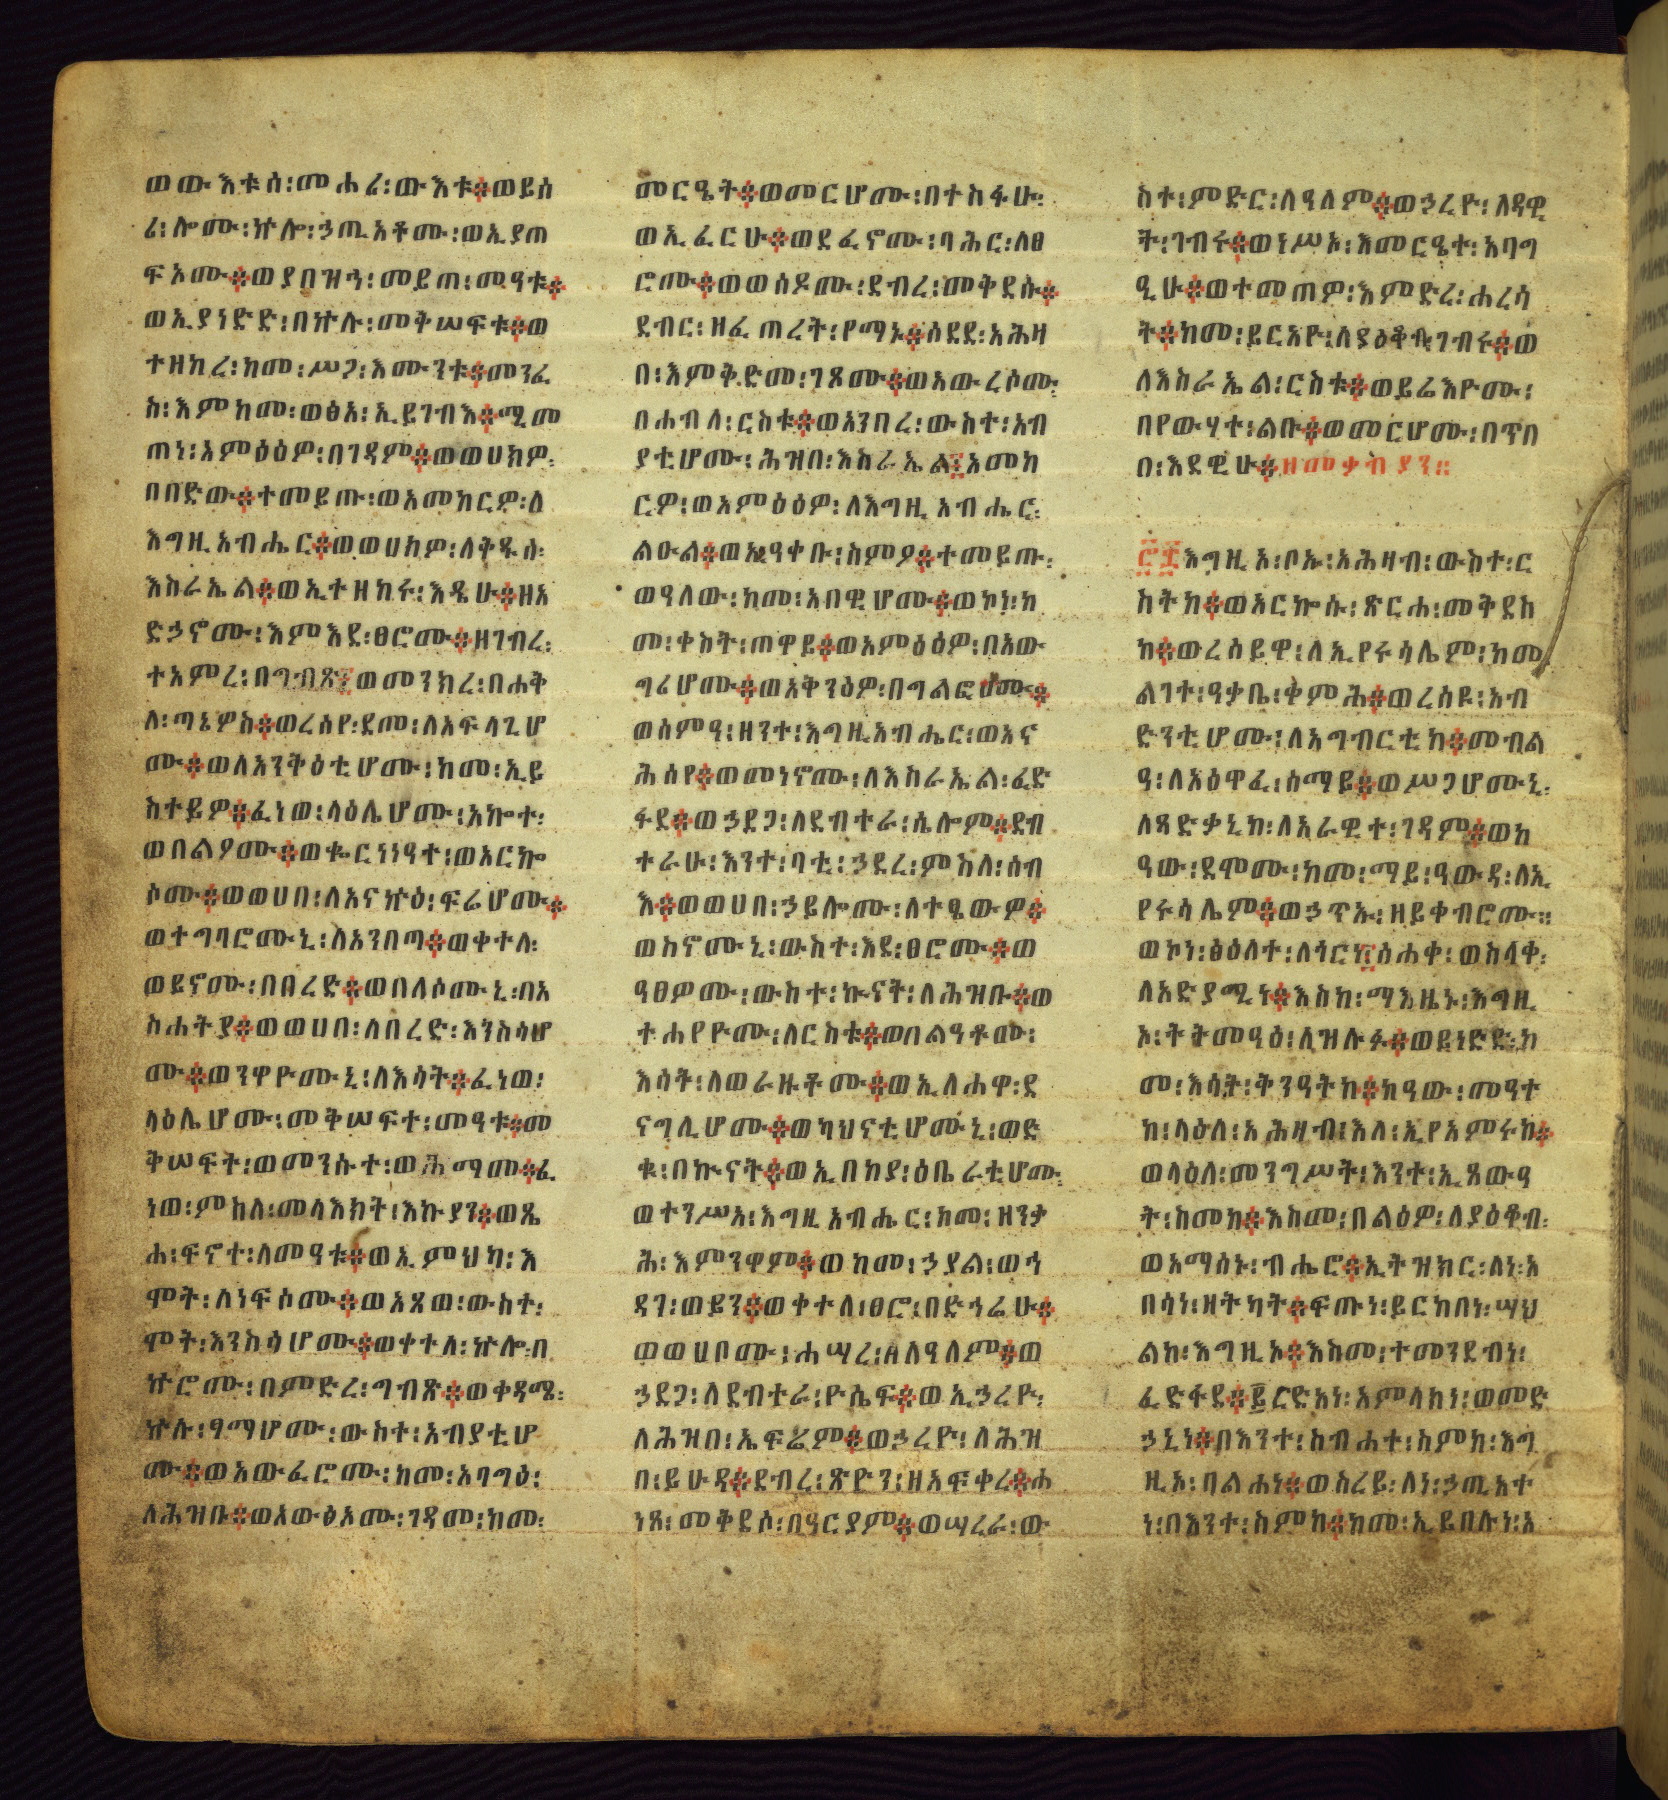 ወውእቱሰ፡መሐሪ፡ውእቱ፨ወይሰ
ሪ፡ሎሙ፡ኵሎ፡ኃጢአቶሙ፡ወኢያጠ
ፍኦሙ፨ወያበዝኅ፡መይጠ፡መዓቱ፨
ወኢያነድድ፡በኵሉ፡መቅሠፍቱ፨ወ
ተዘከረ፡ከመ፡ሥጋ፡እሙንቱ፨መንፈ
ስ፡እምከመ፡ወፅአ፡ኢይገብእ፨ሚመ
ጠነ፡አምዕዕዎ፡በገዳም፨ወወሀክዎ፡
በበድው፨ተመይጡ፡ወአመከርዎ፡ለ
እግዚአብሔር፨ወወሀከዎ፡ለቅዱሰ፡
እስራኤል፨ወኢተዘከሩ፡እዴሁ፨ዘአ
ድኃኖሙ፡እምእደ፡ፀሮሙ፨ዘገብረ፡
ተአምረ፡በግብጽ፨ወመንክረ፡በሐቅ
ለ፡ጣኔዎስ፨ወረሰየ፡ደመ፡ለአፍላጊሆ
ሙ፨ወለአንቅዕቲሆሙ፡ከመ፡ኢይ
ስተይዎ፨ፈነወ፡ላዕሌሆሙ፡አኮተ፡
ወበልዖሙ፨ወቈርነነዓተ፡ወአርኰ
ሶሙ፨ወወሀበ፡ለአናኵዕ፡ፍሬሆሙ፨
ወተግባሮሙኒ፡ለአንበጣ፨ወቀተለ፡
ወይኖሙ፡በበረድ፨ወበለሶሙኒ፡በአ
ስሐትያ፨ወወሀበ፡ለበረድ፡እንስሳሆ
ሙ፨ወንዋዮሙኒ፡ለእሳት፨ፈነወ፡
ላዕሌሆሙ፡መቅሠፍተ፡መዓቱ፨መ
ቅሠፍት፡ወመንሱተ፡ወሕማመ፨ፈ
ነወ፡ምስለ፡መላእክት፡እኩያን፨ወጼ
ሐ፡ፍኖተ፡ለመዓቱ፨ወኢምህካ፡እ
ሞት፡ለነፍሶሙ፨ወአጸወ፡ውስተ፡
ሞት፡እንስሳሆሙ፨ወቀተለ፡ኵሎ፡በ
ኵሮሙ፡በምድረ፡ግብጽ፨ወቀዳሜ፡
ኵሉ፡ፃማሆሙ፡ውስተ፡አብያቲሆ
ሙ፨ወአውፈሮሙ፡ከመ፡አባግዕ፡
ለሕዝቡ፨ወአውፅአሙ፡ገዳመ፡ከመ፡
መርዔት፨ወመርሆሙ፡በተስፋሁ፡
ወኢፈርሁ፨ወደፈኖሙ፡ባሕር፡ለፀ
ሮሙ፨ወወሰዶሙ፡ደብረ፡መቅደሱ፨
ደብር፡ዘፈጠረት፡የማኑ፨ሰደደ፡አሕዛ
በ፡እምቅድመ፡ገጾሙ፨ወአውረሶሙ፡
በሐብለ፡ርስቱ፨ወአንበረ፡ውስተ፡አብ
ያቲሆሙ፡ሕዝበ፡እስራኤል፨አመከ
ርዎ፡ወአምዕዕዎ፡ለእግዚአብሔር፡
ልዑል፨ወኢዓቀቡ፡ስምዖ፨ተመይጡ፡
ወዓለው፡ከመ፡አበዊሆሙ፨ወኮኑ፡ከ
መ፡ቀስት፡ጠዋይ፨ወአምዕዕዎ፡በአው
ግሪሆሙ፨ወአቅንዕዎ፡በግልፎሆሙ፨
ወሰምዓ፡ዘንተ፡እግዚአብሔር፡ወአና
ሕሰየ፨ወመነኖሙ፡ለእስራኤል፡ፈድ
ፋደ፨ወኃደጋ፡ለደብተራ፡ሴሎም፨ደብ
ተራሁ፡እንተ፡ባቲ፡ኃደረ፡ምስለ፡ሰብ
እ፨ወወሀበ፡ኃይሎሙ፡ለተፄውዎ፨
ወስኖሙኒ፡ውስተ፡እደ፡ፀሮሙ፨ወ
ዓፀዎሙ፡ውስተ፡ኩናት፡ለሕዝቡ፨ወ
ተሐየዮሙ፡ለርስቱ፨ወበልዓቶሙ፡
እሳት፡ለወራዙቶሙ፨ወኢለሐዋ፡ደ
ናግሊሆሙ፨ወካህናቲሆሙኒ፡ወድ
ቁ፡በኩናት፨ወኢበከያ፡ዕቤራቲሆሙ፡
ወተንሥአ፡እግዚአብሔር፡ከመ፡ዘንቃ
ሕ፡እምንዋም፨ወከመ፡ኃያል፡ወኅ
ዳገ፡ወይን፨ወቀተለ፡ፀሮ፡በድኅሬሁ፨
ወወሀቦሙ፡ሐሣረ፡ዘለዓለም፨ወ
ኃደጋ፡ለደብተራ፡ዮሴፍ፨ወኢኃረዮ፡
ለሕዝበ፡ኤፍሬም፨ወኃረዮ፡ለሕዝ
በ፡ይሁዳ፨ደብረ፡ጽዮን፡ዘአፍቀረ፨ሐ
ነጸ፡መቅደሶ፡በዓርያም፨ወሣረራ፡ው
ስተ፡ምድር፡ለዓለም፨ወኃረዮ፡ለዳዊ
ት፡ገብሩ፨ወነሥኦ፡እመርዔተ፡አባግ
ዒሁ፨ወተመጠዎ፡እምድረ፡ሐረሳ
ት፨ከመ፡ይርአዮ፡ለያዕቆብ፡ገብሩ፨ወ
ለእስራኤል፡ርስቱ፨ወይሬእዮሙ፡
በየውሃተ፡ልቡ፨ወመርሆሙ፡በጥበ
በ፡እደዊሁ፨ዘመቃብያን።
፸፰እግዚአ፡ቦኡ፡አሕዛብ፡ውስተ፡ር
ስትከ፨ወአርኰሱ፡ጽርሐ፡መቅደስ
ከ፨ወረሰይዋ፡ለኢየሩሳሌም፡ከመ
ልገተ፡ዓቃቤ፡ቀምሕ፨ወረሰዩ፡አብ
ድንቲሆሙ፡ለአግብርቲከ፨መብል
ዓ፡ለአዕዋፈ፡ሰማይ፨ወሥጋሆሙኒ፡
ለጻድቃኒከ፡ለአራዊተ፡ገዳም፨ወከ
ዓው፡ደሞሙ፡ከመ፡ማይ፡ዓውዳ፡ለኢ
የሩሳሌም፨ወኃጥኡ፡ዘይቀብሮሙ።
ወኮነ፡ፅዕለተ፡ለጎርነ፨ዕሐቀ፡ወስላቀ፡
ለአድያሚነ፨እስከ፡ማእዜኑ፡እግዚ
ኦ፡ትትመዓዕ፡ለዝሉፉ፨ወይነድድ፡ከ
መ፡እሳት፡ቅንዓትከ፨ከዓው፡መዓተ
ከ፡ላዕለ፡አሕዛብ፡እለ፡ኢየአምሩከ፨
ወላዕለ፡መንግሥት፡እንተ፡ኢጸውዓ
ት፡ስመከ፨እስመ፡በልዕዎ፡ለያዕቆብ፡
ወአማሰኑ፡ብሔሮ፨ኢትዝክር፡ለነ፡አ
በሳነ፡ዘትካት፨ፍጡነ፡ይርከበነ፡ሣህ
ልከ፡እግዚኦ፨እስመ፡ተመንደብነ፡
ፈድፋደ፨ይርድአነ፡አምላክነ፡ወመድ
ኃኒነ፨በእንተ፡ስብሐተ፡ስምከ፡እግ
ዚኦ፡ባልሐነ፨ወስረይ፡ለነ፡ኃጢአተ
ነ፡በእንተ፡ስምከ፨ከመ፡ኢይበሉነ፡አ